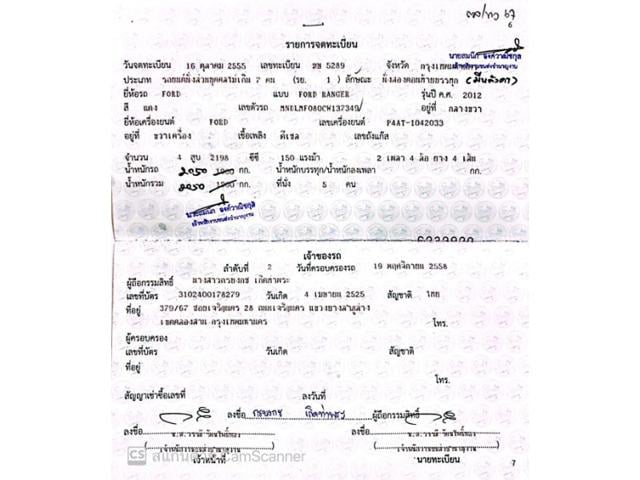 รายการจดทะเบียน
วันจดทะเบียน 16 ตุลาคม 2555 เลขทะเบียน 5289 จังหวัด
ประเภท รถยนต์นั่งส่วนบุคคลไม่เกิน 7 คน (รย. 1 ) ลักษณะ นั่งสองตอนท้ายบรรทุก
ยี่ห้อรถ FORD แบบ FORD RANGER รุ่นปี ค.ศ. 2012
สี แดง เลขตัวรถ MNELMF080CW137349 อยู่ที่ กลางขวา
ยี่ห้อเครื่องยนต์ FORD เลขเครื่องยนต์ P4AT-1042033
อยู่ที่ ขวาเครื่อง เชื้อเพลิง ดีเซล เลขถังแก๊ส
จำนวน 4 สูบ 2198 ซีซี 150 แรงม้า 2 เพลา 4 ล้อ ยาง 4 เส้น
น้ำหนักรถ 2050 กก. น้ำหนักบรรทุก/น้ำหนักลงเพลา กก.
น้ำหนักรวม 2050 กก. ที่นั่ง 5 คน
เจ้าของรถ
ลำดับที่ 2 วันที่ครอบครองรถ 19 พฤศจิกายน 2558
ผู้ถือกรรมสิทธิ์ นางสาว
เลขที่บัตร 3102400178279 วันเกิด 4 เมษายน 2525 สัญชาติ ไทย
ที่อยู่ 379/67 ซอยเจริญนคร 28 ถนนเจริญนคร แขวงบางลำภูล่าง
เขตคลองสาน กรุงเทพมหานคร โทร.
ผู้ครอบครอง
เลขที่บัตร วันเกิด สัญชาติ
ที่อยู่
โทร.
สัญญาเช่าซื้อเลขที่ ลงวันที่
ลงชื่อ ผู้ถือกรรมสิทธิ์
ลงชื่อ
เจ้าหน้าที่ นายทะเบียน
CS สแกนด้วย CamScanner
7